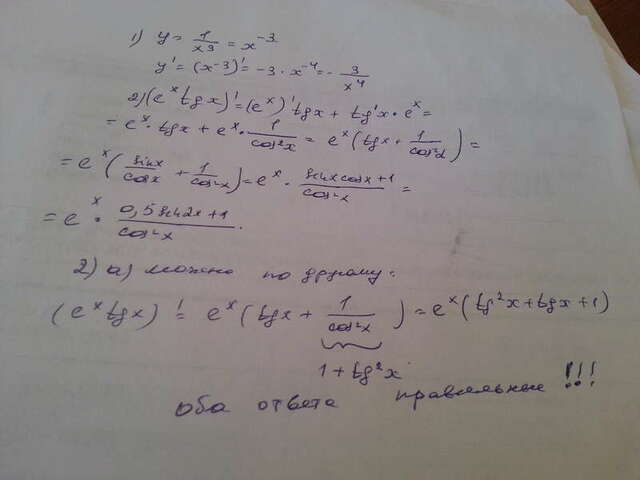 1) y = 1/x³ = x⁻³
y' = (x⁻³)' = -3 · x⁻⁴ = - 3/x⁴
2) (eˣ tgx)' = (eˣ)' tgx + tg'x · eˣ =
= eˣ · tgx + eˣ · 1/cos²x = eˣ (tgx + 1/cos²x) =
= eˣ (sinx/cosx + 1/cos²x) = eˣ · sinxcosx+1/cos²x =
= eˣ · 0,5sin2x+1/cos²x.
2) а) можно по другому:
(eˣ tgx)' = eˣ (tgx + 1/cos²x) = eˣ (tg²x + tgx + 1)
1 + tg²x
оба ответа правильные!!!